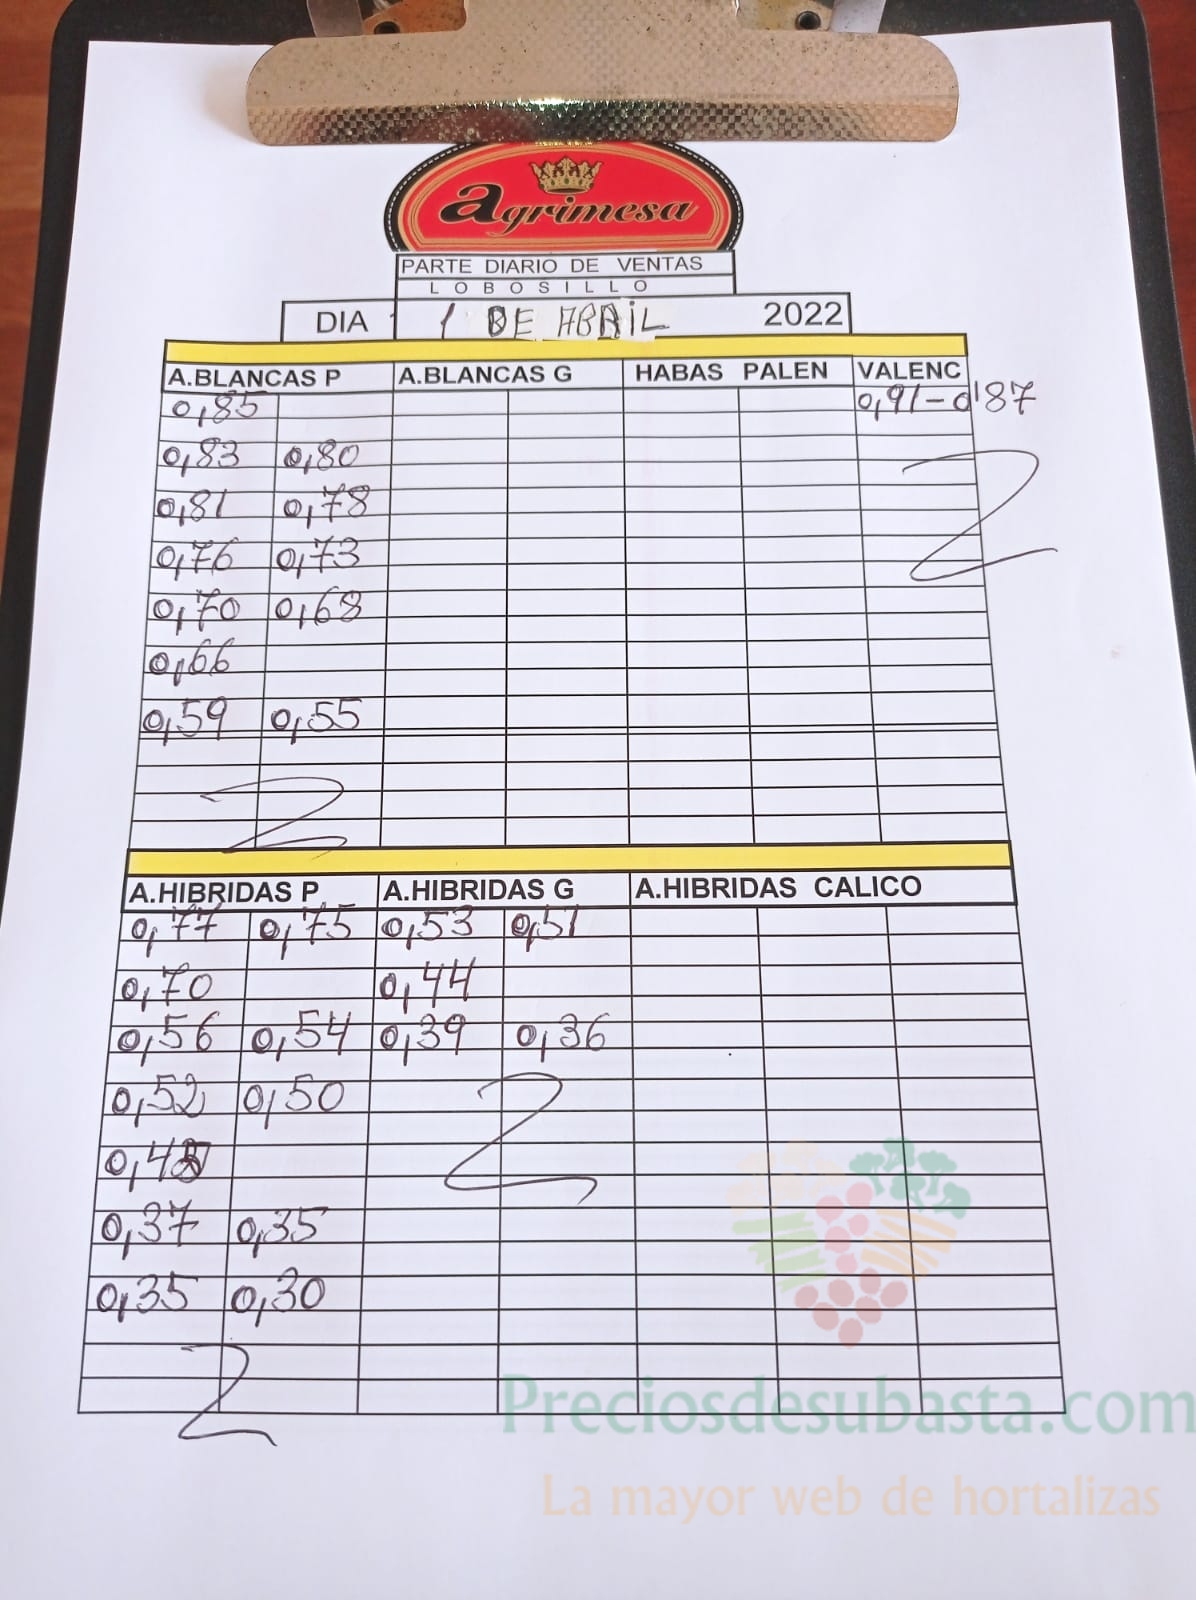 Agrimesa
PARTE DIARIO DE VENTAS
LOBOSILLO
DIA 1 DE ABRIL 2022
A.BLANCAS P A.BLANCAS G HABAS PALEN VALENC
0,85 0,91-0'87
0,83 0,80
0,81 0,78
0,76 0,73
0,70 0,68
0,66
0,59 0,55
A.HIBRIDAS P A.HIBRIDAS G A.HIBRIDAS CALICO
0,77 0,75 0,53 0,51
0,70 0,44
0,56 0,54 0,39 0,36
0,52 0,50
0,37 0,35
0,35 0,30
Preciosdesubasta.com
La mayor web de hortalizas